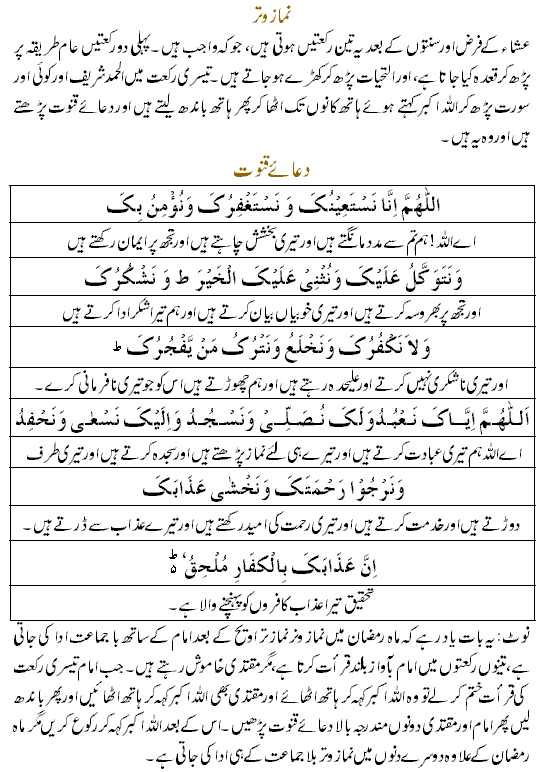 نماز وتر
عشاء کے فرض اور سنتوں کے بعد یہ تین رکعتیں ہوتی ہیں، جو کہ واجب ہیں ۔ پہلی دو رکعتیں عام طریقہ پر
پڑھ کر قعدہ کیا جاتا ہے، اور التحیات پڑھ کر کھڑے ہو جاتے ہیں ۔ تیسری رکعت میں الحمد شریف اور کوئی اور
سورت پڑھ کر اللہ اکبر کہتے ہوئے ہاتھ کانوں تک اٹھا کر پھر ہاتھ باندھ لیتے ہیں اور دعائے قنوت پڑھتے
ہیں اور وہ یہ ہیں ۔
دعائے قنوت
اَللّٰهُمَّ اِنَّا نَسْتَعِیْنُکَ وَ نَسْتَغْفِرُکَ وَنُؤْمِنُ بِکَ
اے اللہ! ہم تم سے مدد مانگتے ہیں اور تیری بخشش چاہتے ہیں اور تجھ پر ایمان رکھتے ہیں
وَنَتَوَکَّلُ عَلَیْکَ وَنُثْنِیْ عَلَیْکَ الْخَیْرَ ط وَ نَشْکُرُکَ
اور تجھ پر بھروسہ کرتے ہیں اور تیری خوبیاں بیان کرتے ہیں اور ہم تیرا شکر ادا کرتے ہیں
وَلاَ نَکْفُرُکَ وَنَخْلَعُ وَنَتْرُکُ مَنْ یَّفْجُرُکَ ط
اور تیری ناشکری نہیں کرتے اور علیحدہ رہتے ہیں اور ہم چھوڑتے ہیں اس کو جو تیری نافرمانی کرے ۔
اَللّٰهُمَّ اِیَّاکَ نَعْبُدُ وَلَکَ نُصَلِّیْ وَنَسْجُدُ وَاِلَیْکَ نَسْعٰی وَنَحْفِدُ
اے اللہ ہم تیری عبادت کرتے ہیں اور تیرے ہی لئے نماز پڑھتے ہیں اور سجدہ کرتے ہیں اور تیری طرف
وَنَرْجُوْا رَحْمَتَکَ وَنَخْشٰی عَذَابَکَ
دوڑتے ہیں اور خدمت کرتے ہیں اور تیری رحمت کی امید رکھتے ہیں اور تیرے عذاب سے ڈرتے ہیں ۔
اِنَّ عَذَابَکَ بِالْکُفَّارِ مُلْحِقٌ ط
تحقیق تیرا عذاب کافروں کو پہنچنے والا ہے ۔
نوٹ : یہ بات یاد رہے کہ ماہ رمضان میں نماز وتر نماز تراویح کے بعد امام کے ساتھ با جماعت ادا کی جاتی
ہے، تینوں رکعتوں میں امام بآواز بلند قرأت کرتا ہے، مگر مقتدی خاموش رہتے ہیں ۔ جب امام تیسری رکعت
کی قرأت ختم کر لے تو وہ اللہ اکبر کہہ کر ہاتھ اٹھائے اور مقتدی بھی اللہ اکبر کہہ کر ہاتھ اٹھائیں اور پھر باندھ
لیں پھر امام اور مقتدی دونوں مندرجہ بالا دعائے قنوت پڑھیں ۔ اس کے بعد اللہ اکبر کہہ کر رکوع کریں مگر ماہ
رمضان کے علاوہ دوسرے دنوں میں نماز وتر بلا جماعت کے ہی ادا کی جاتی ہے ۔